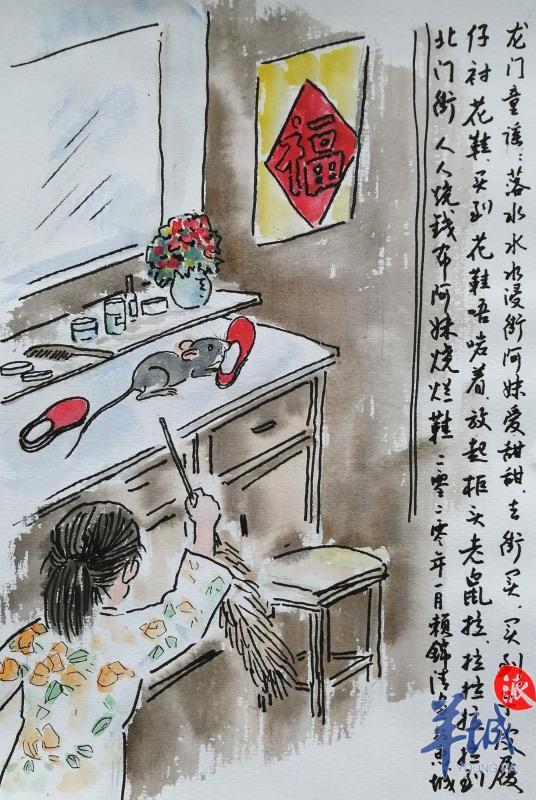 龙门童谣：落水水水浸街阿妹爱甜甜。去街买。买到皮屐
仔衬花鞋。买到花鞋唔啱着。放起柜头老鼠拉拉拉拉拉到
北门街人人烧钱布阿妹烧烂鞋 二零二零年一月赖锦城
福
羊城
YOUNG
派